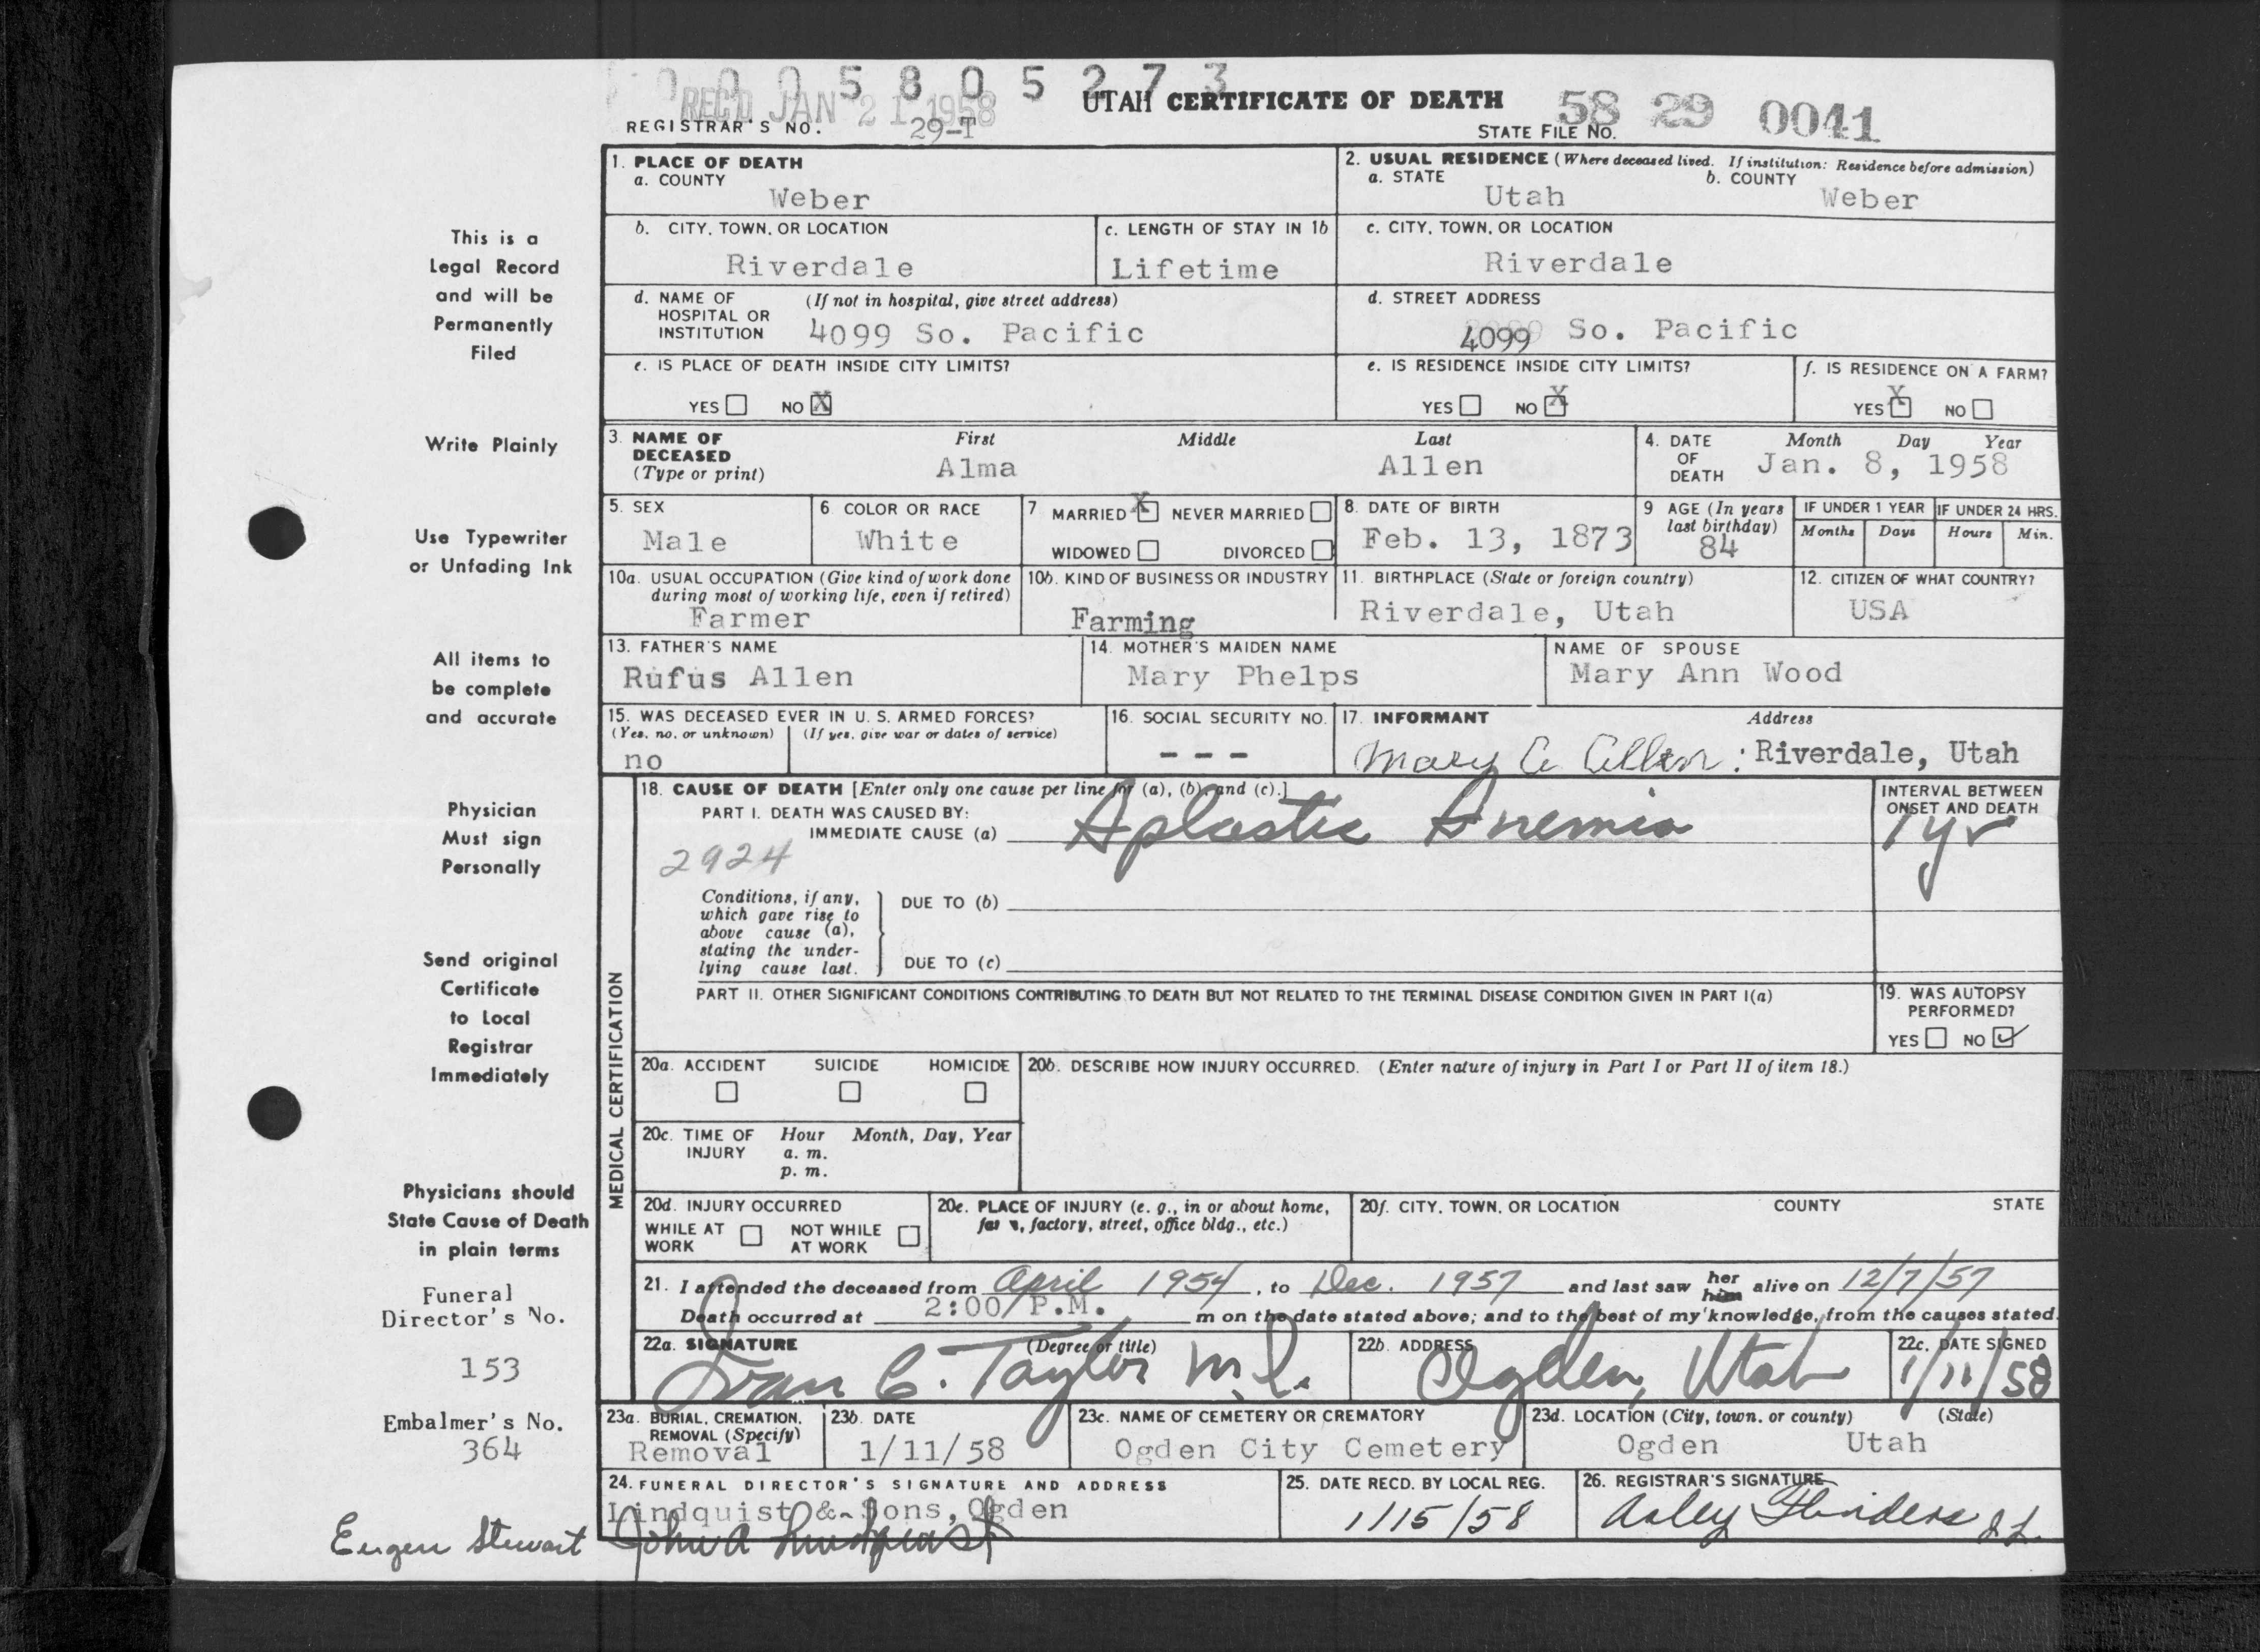 0 0 0 5 8 0 5 2 7 3
REC'D JAN 21 1958
UTAH CERTIFICATE OF DEATH
REGISTRAR'S NO. 29-T
STATE FILE NO. 58 29 0041
1. PLACE OF DEATH
a. COUNTY
Weber
2. USUAL RESIDENCE (Where deceased lived. If institution: Residence before admission)
a. STATE b. COUNTY
Utah Weber
b. CITY, TOWN, OR LOCATION
Riverdale
c. LENGTH OF STAY IN 1b
Lifetime
c. CITY, TOWN, OR LOCATION
Riverdale
d. NAME OF (If not in hospital, give street address)
HOSPITAL OR
INSTITUTION 4099 So. Pacific
d. STREET ADDRESS
4099 So. Pacific
e. IS PLACE OF DEATH INSIDE CITY LIMITS?
YES NO X
e. IS RESIDENCE INSIDE CITY LIMITS?
YES NO X
f. IS RESIDENCE ON A FARM?
YES X NO
3. NAME OF DECEASED (Type or print)
First Middle Last
Alma Allen
4. DATE OF DEATH
Month Day Year
Jan. 8, 1958
5. SEX
Male
6. COLOR OR RACE
White
7. MARRIED X NEVER MARRIED
WIDOWED DIVORCED
8. DATE OF BIRTH
Feb. 13, 1873
9 AGE (In years last birthday)
84
IF UNDER 1 YEAR
Months Days
IF UNDER 24 HRS.
Hours Min.
10a. USUAL OCCUPATION (Give kind of work done
during most of working life, even if retired)
Farmer
10b. KIND OF BUSINESS OR INDUSTRY
Farming
11. BIRTHPLACE (State or foreign country)
Riverdale, Utah
12. CITIZEN OF WHAT COUNTRY?
USA
13. FATHER'S NAME
Rufus Allen
14. MOTHER'S MAIDEN NAME
Mary Phelps
NAME OF SPOUSE
Mary Ann Wood
15. WAS DECEASED EVER IN U. S. ARMED FORCES?
(Yes, no, or unknown) (If yes, give war or dates of service)
no
16. SOCIAL SECURITY NO.
- - -
17. INFORMANT Address
Mary A Allen: Riverdale, Utah
MEDICAL CERTIFICATION
18. CAUSE OF DEATH [Enter only one cause per line for (a), (b), and (c).]
PART I. DEATH WAS CAUSED BY:
IMMEDIATE CAUSE (a) Aplastic Anemia
INTERVAL BETWEEN
ONSET AND DEATH
1 yr
2924
Conditions, if any,
which gave rise to
above cause (a),
stating the under-
lying cause last.
DUE TO (b)
DUE TO (c)
PART II. OTHER SIGNIFICANT CONDITIONS CONTRIBUTING TO DEATH BUT NOT RELATED TO THE TERMINAL DISEASE CONDITION GIVEN IN PART I(a)
19. WAS AUTOPSY
PERFORMED?
YES NO ✓
20a. ACCIDENT SUICIDE HOMICIDE
20b. DESCRIBE HOW INJURY OCCURRED. (Enter nature of injury in Part I or Part II of item 18.)
20c. TIME OF Hour Month, Day, Year
INJURY a. m.
p. m.
20d. INJURY OCCURRED
WHILE AT WORK NOT WHILE AT WORK
20e. PLACE OF INJURY (e. g., in or about home,
farm, factory, street, office bldg., etc.)
20f. CITY, TOWN, OR LOCATION COUNTY STATE
21. I attended the deceased from April 1954, to Dec. 1957 and last saw her him alive on 12/7/57
Death occurred at 2:00/P.M. m on the date stated above; and to the best of my knowledge, from the causes stated.
22a. SIGNATURE (Degree or title)
Ivan C. Taylor M.D.
22b. ADDRESS
Ogden, Utah
22c. DATE SIGNED
1/11/58
23a. BURIAL, CREMATION,
REMOVAL (Specify)
Removal
23b. DATE
1/11/58
23c. NAME OF CEMETERY OR CREMATORY
Ogden City Cemetery
23d. LOCATION (City, town, or county) (State)
Ogden Utah
24. FUNERAL DIRECTOR'S SIGNATURE AND ADDRESS
Lindquist & Sons, Ogden
John A Lindquist
25. DATE RECD. BY LOCAL REG.
1/15/58
26. REGISTRAR'S SIGNATURE
This is a
Legal Record
and will be
Permanently
Filed
Write Plainly
Use Typewriter
or Unfading Ink
All items to
be complete
and accurate
Physician
Must sign
Personally
Send original
Certificate
to Local
Registrar
Immediately
Physicians should
State Cause of Death
in plain terms
Funeral
Director's No.
153
Embalmer's No.
364
Eugene Stewart